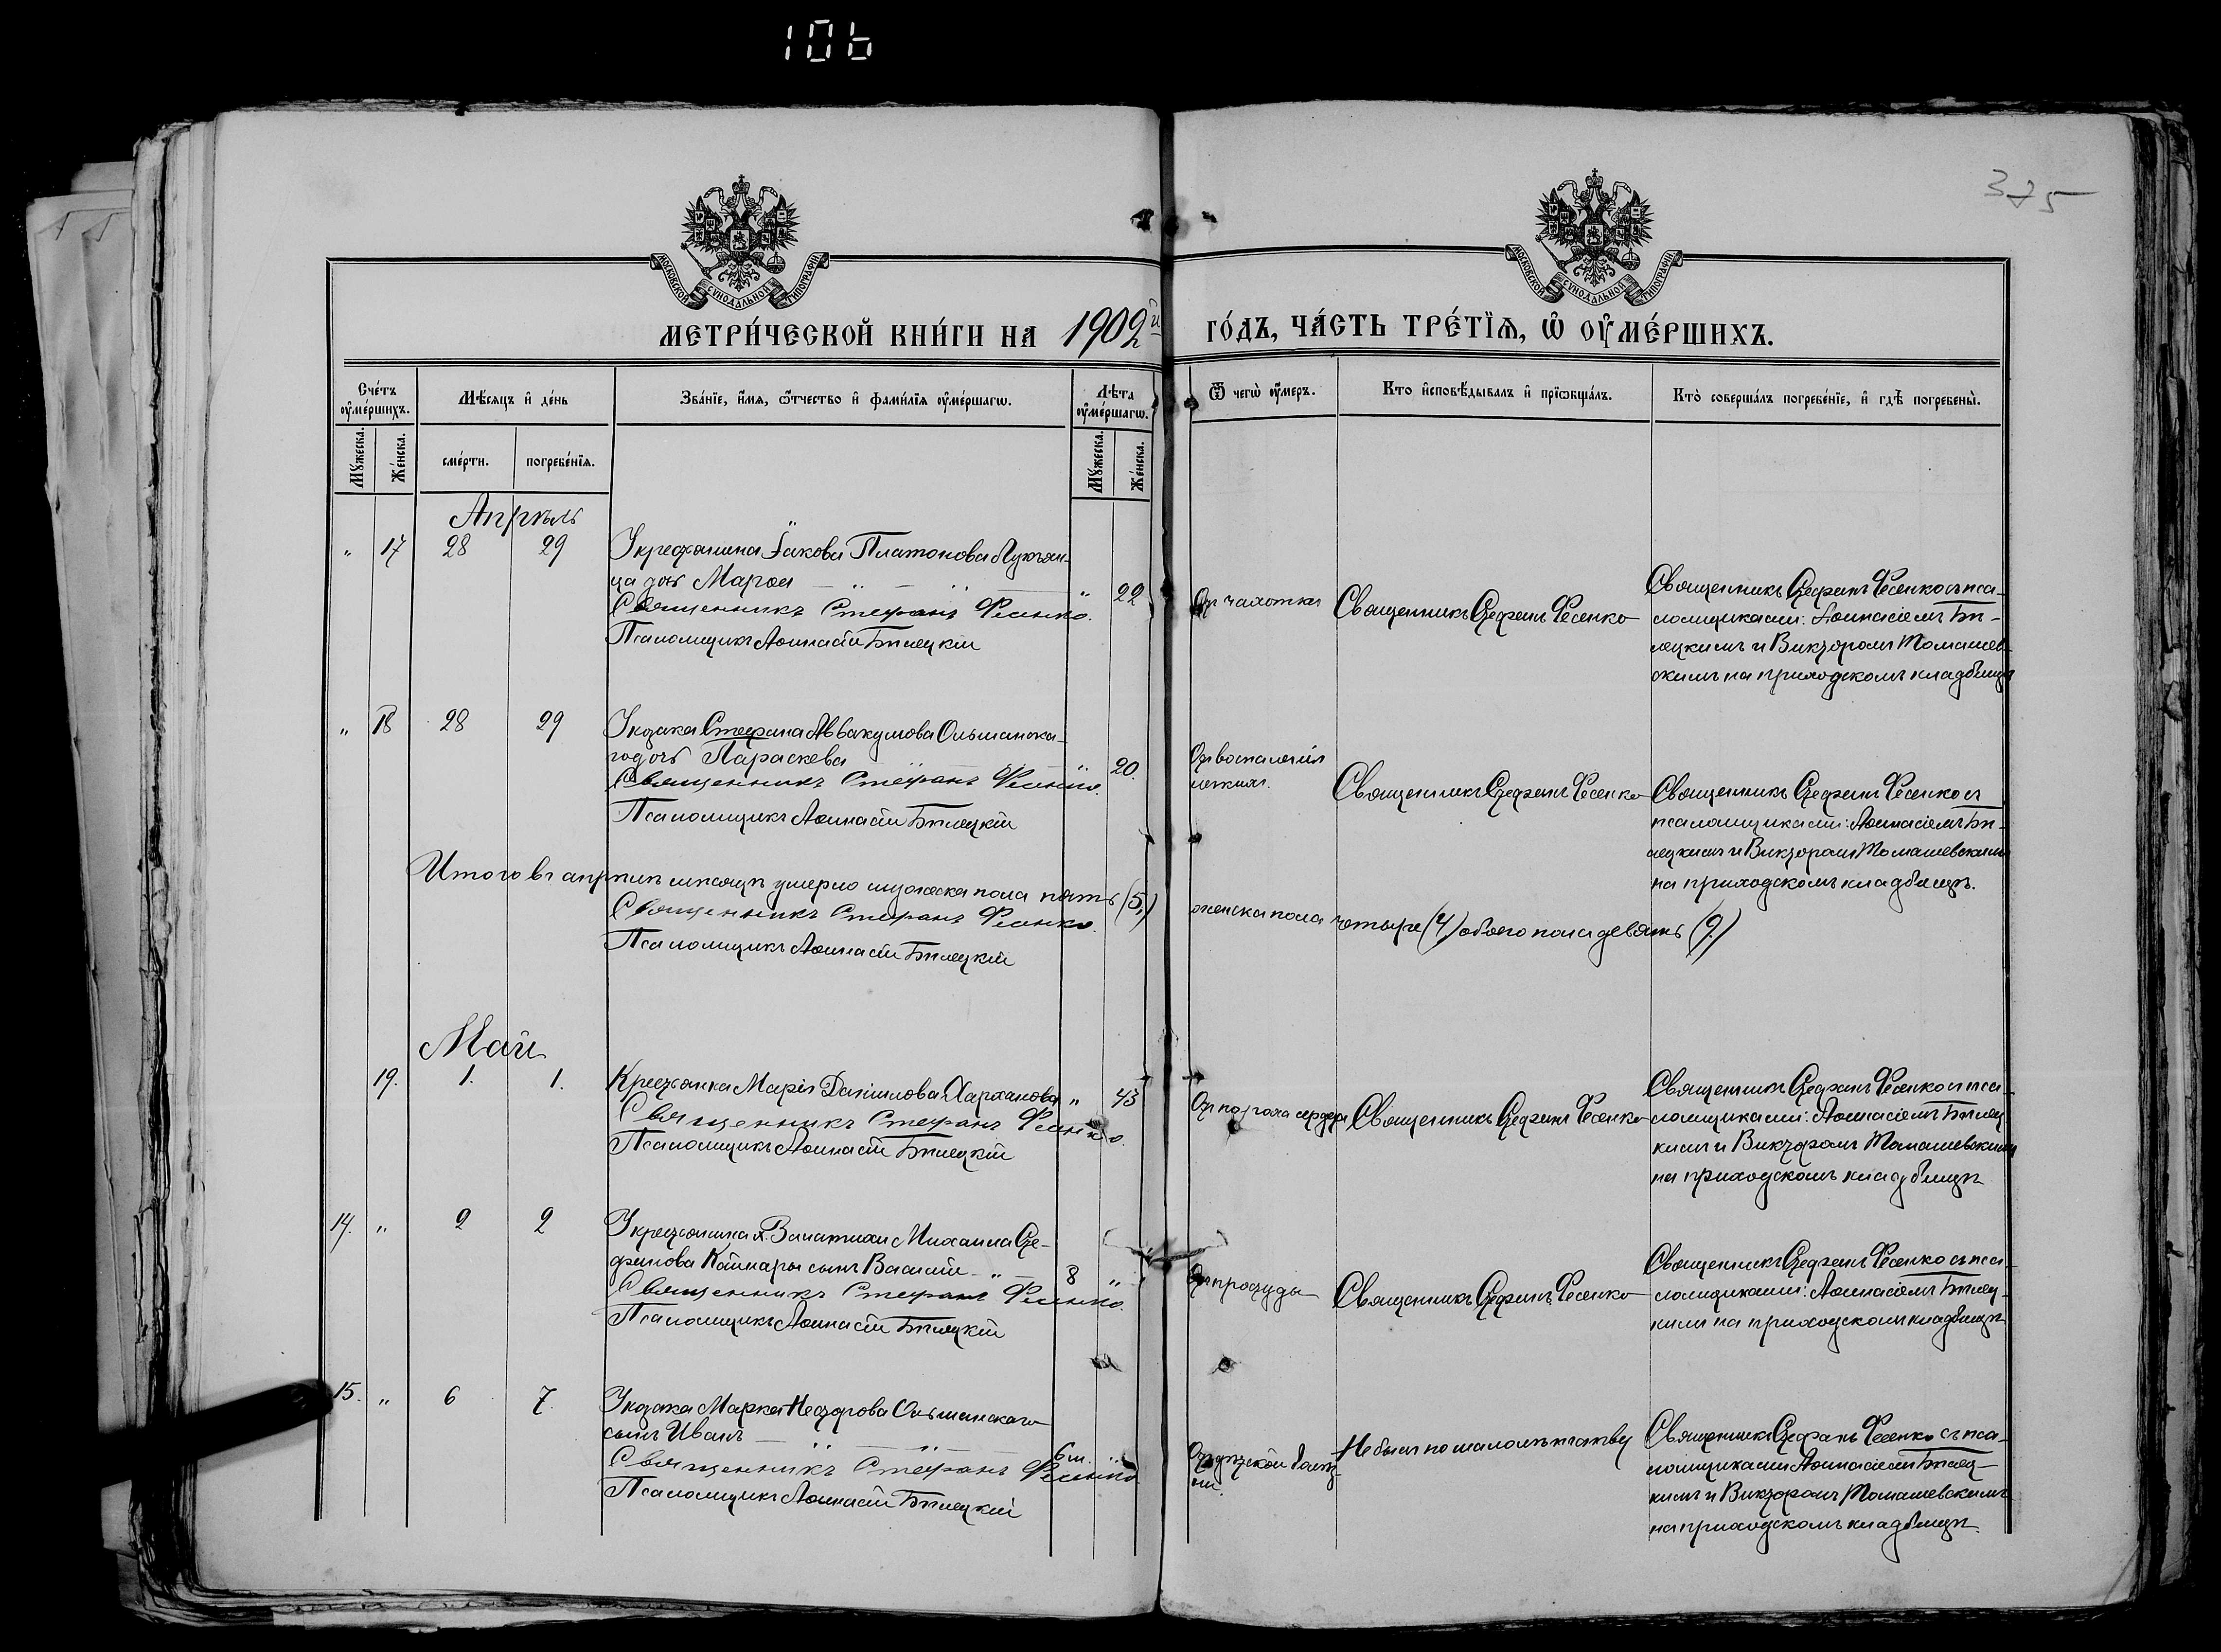 106
375
МОСКОВСКОЙ СѴНОДАЛЬНОЙ ТИПОГРАФІИ
МОСКОВСКОЙ СѴНОДАЛЬНОЙ ТИПОГРАФІИ
МЕТРИ́ЧЕСКОЙ КНИ́ГИ НА 1902й ГО́ДЪ, ЧА́СТЬ ТРЕ́ТЇѦ, Ѡ҆ ОУ҆МЕ́РШИХЪ.
Сче́тъ оу҆ме́ршихъ.
Мѣ́сяцъ и҆ де́нь
Зва́нїе, и҆́мя, ѻ҆́тчество и҆ фами́лїя оу҆ме́ршагѡ.
Лѣ́та оу҆ме́ршагѡ.
Ѿ чегѡ̀ оу҆́меръ.
Кто̀ и҆сповѣ́дывалъ и҆ прїѡбща́лъ.
Кто̀ соверша́лъ погребе́нїе, и҆ гдѣ̀ погребены̀.
Мꙋ́жеска.
Же́нска.
сме́рти.
погребе́нїя.
Мꙋ́жеска.
Же́нска.
Апрѣль
" 17 28 29 У крестьянина Іакова Платонова Лукьян-
ца дочь Марѳа " 22
Священникъ Стефанъ Фесенко.
Псаломщикъ Аѳанасій Бѣлецкій
От чахотки
Священникъ Стефанъ Фесенко
Священникъ Стефанъ Фесенко съ пса-
ломщиками: Аѳанасіемъ Бѣ-
лецкимъ и Викторомъ Томашев-
скимъ на приходскомъ кладбищѣ
" 18 28 29 У козака Стефана Аввакумова Ольшанска-
го дочь Параскева " 20.
Священникъ Стефанъ Фесенко.
Псаломщикъ Аѳанасій Бѣлецкій
От воспаленія
легкихъ.
Священникъ Стефанъ Фесенко
Священникъ Стефанъ Фесенко съ
псаломщиками: Аѳанасіемъ Бѣ-
лецкимъ и Викторомъ Томашевскимъ
на приходскомъ кладбищѣ.
Итого въ апрѣлѣ мѣсяцѣ умерло мужеска пола пять (5,) женска пола четыре (4,) обоего пола девять (9.)
Священникъ Стефанъ Фесенко.
Псаломщикъ Аѳанасій Бѣлецкій
Май
19. 1. 1. Крестьянка Марія Даніилова Харханова " 43
Священникъ Стефанъ Фесенко.
Псаломщикъ Аѳанасій Бѣлецкій
От порока сердца
Священникъ Стефанъ Фесенко
Священникъ Стефанъ Фесенко съ пса-
ломщиками: Аѳанасіемъ Бѣлец-
кимъ и Викторомъ Томашевскимъ
на приходскомъ кладбищѣ
14. " 2 2 У крестьянина Михаила Сте-
фанова сынъ Василій " 8 "
Священникъ Стефанъ Фесенко.
Псаломщикъ Аѳанасій Бѣлецкій
От простуды
Священникъ Стефанъ Фесенко
Священникъ Стефанъ Фесенко съ пса-
ломщиками: Аѳанасіемъ Бѣлец-
кимъ на приходскомъ кладбищѣ
15. " 6 7. У козака Марка Несторова Ольшанскаго
сынъ Иванъ 6 м. "
Священникъ Стефанъ Фесенко
Псаломщикъ Аѳанасій Бѣлецкій
От дѣтской болѣз-
ни.
Не былъ по малолѣтству
Священникъ Стефанъ Фесенко съ пса-
ломщиками Аѳанасіемъ Бѣлец-
кимъ и Викторомъ Томашевскимъ
на приходскомъ кладбищѣ.